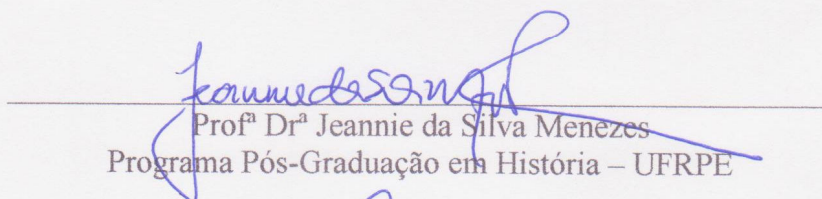 Profª Drª Jeannie da Silva Menezes
Programa Pós-Graduação em História – UFRPE